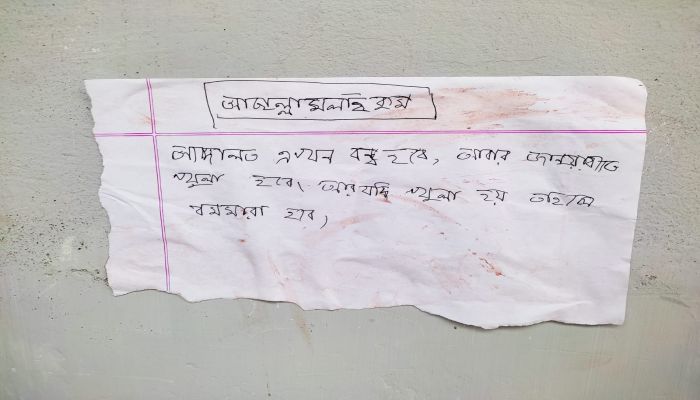 আছাল্লামলাই কুম
আদালত এখন বন্ধ হবে, আবার জানুয়ারীতে
খুলা হবে। আর যদি খুলা হয় তাহলে
বমমারা হবে,